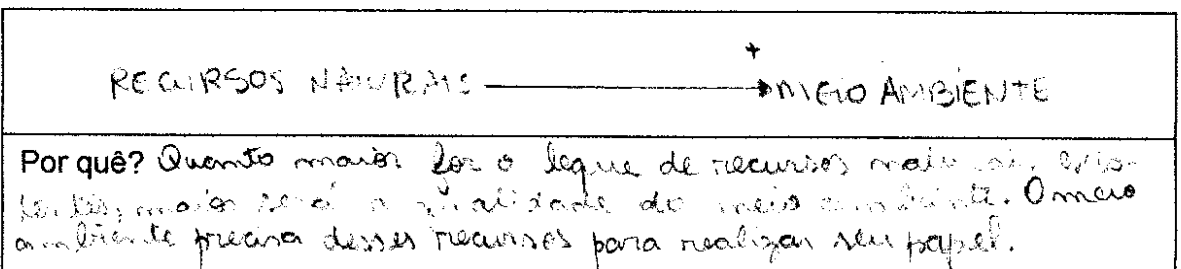 +
RECURSOS NATURAIS MEIO AMBIENTE
Por quê? Quanto maior for o leque de recursos naturais, exis-
tentes, maior será a qualidade do meio ambiente. O meio
ambiente precisa desses recursos para realizar seu papel.